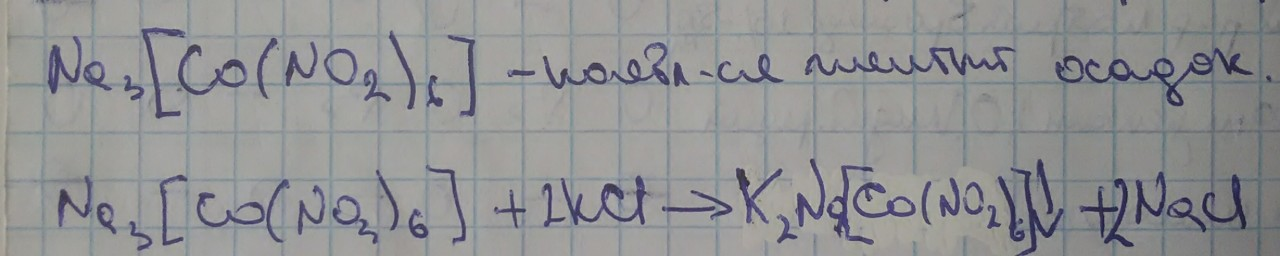 Na₃[Co(NO₂)₆] - появл-ся желтый осадок.
Na₃[Co(NO₂)₆] + 2KCl → K₂Na[Co(NO₂)₆]↓ + 2NaCl